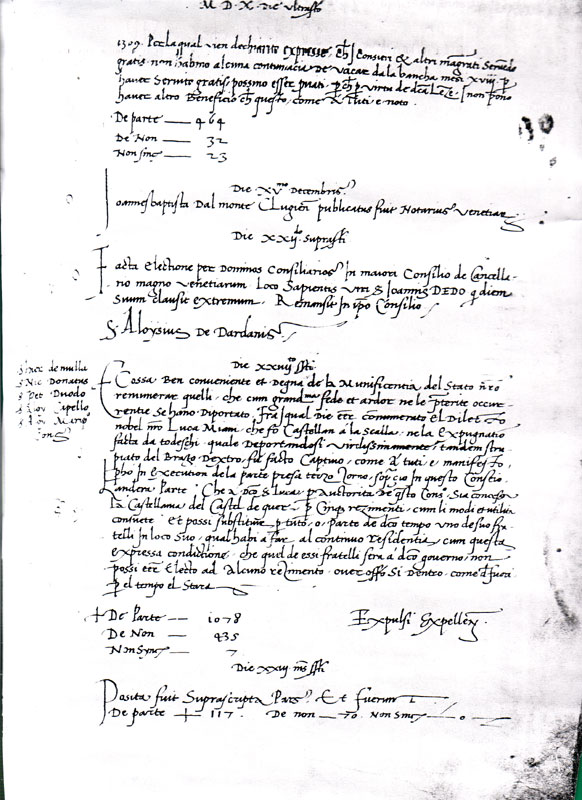 M D X Die ultrasto
1309. Per la qual vien dechiarito expresse, ch i consieri & altri magrati Servendo
gratis non habino alcuna contumacia De vacar da la bancha mesi xviii. p
haver Servito gratis possino esser pvati
haver altro Beneficio ch questo, come a tuti e noto.
De parte — 464
De Non — 32
Non sinc — 23
Die XV Decembris.
Ioannes baptista Dal monte Clugien publicatus fuit Notarius Venetiar
Die XXII suprasti
Facta Electione per Dominos Consiliarios In maiori Consilio de Cancella-
rio magno Venetiarum Loco Sapientis Viri S Ioannis DEDO q diem
Suum clausit extremum. Remansit In ipo Consilio
S. Aloysius De Dardanis
Die XXIIII ssti
S Nic Donatus
S Pet Duodo
S Zuov Capello
Cossa Ben conveniente et Degna de la Munificentia del Stato nro
remunerar quelli, che cum grandma fede et ardor ne le pterite occur
rentie se hano Diportato, Fra i qual Die eer connumerato el Dilet
nobel nro Luca Miani, che fo Castellan a la Scalla, ne la expugnatio
facta da todeschi, quale Deportandosi virilissimamente, tandem stru
piato del Brazo Dextro, fu facto Captivo, come a tuti e manifesto,
pho in execution de la parte presa terzo zorno, sop cio in questo Conseio
Landera Parte, Che a dco S. Luca p auctorita de qsto Cons. Sia concessa
La Castellania del Castel de quer p Cinq rezimenti, cum li modi et utilita
consuete. et possi substituir p tuto, o Parte de dco tempo uno de suo fra
telli in loco Suo, qual habi a far al continuo residentia, cum questa
expressa conditione, che quel de essi fratelli sera a dco governo, non
possi eer Electo ad Alcuno rezimento, over offo Si Dentro, come d fuora
p el tempo el Stara
+ De Parte — 1078
De Non — 435
Non Syn — 7
Expulsi Expellen
Die XXIIII ms ssti
Posita fuit Suprascripta Pars. Et fuerunt
De parte + 117. De non — 70. Non sinc — 0